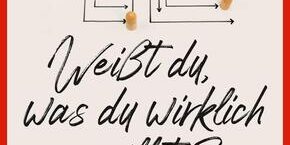 Weißt du,
was du wirklich